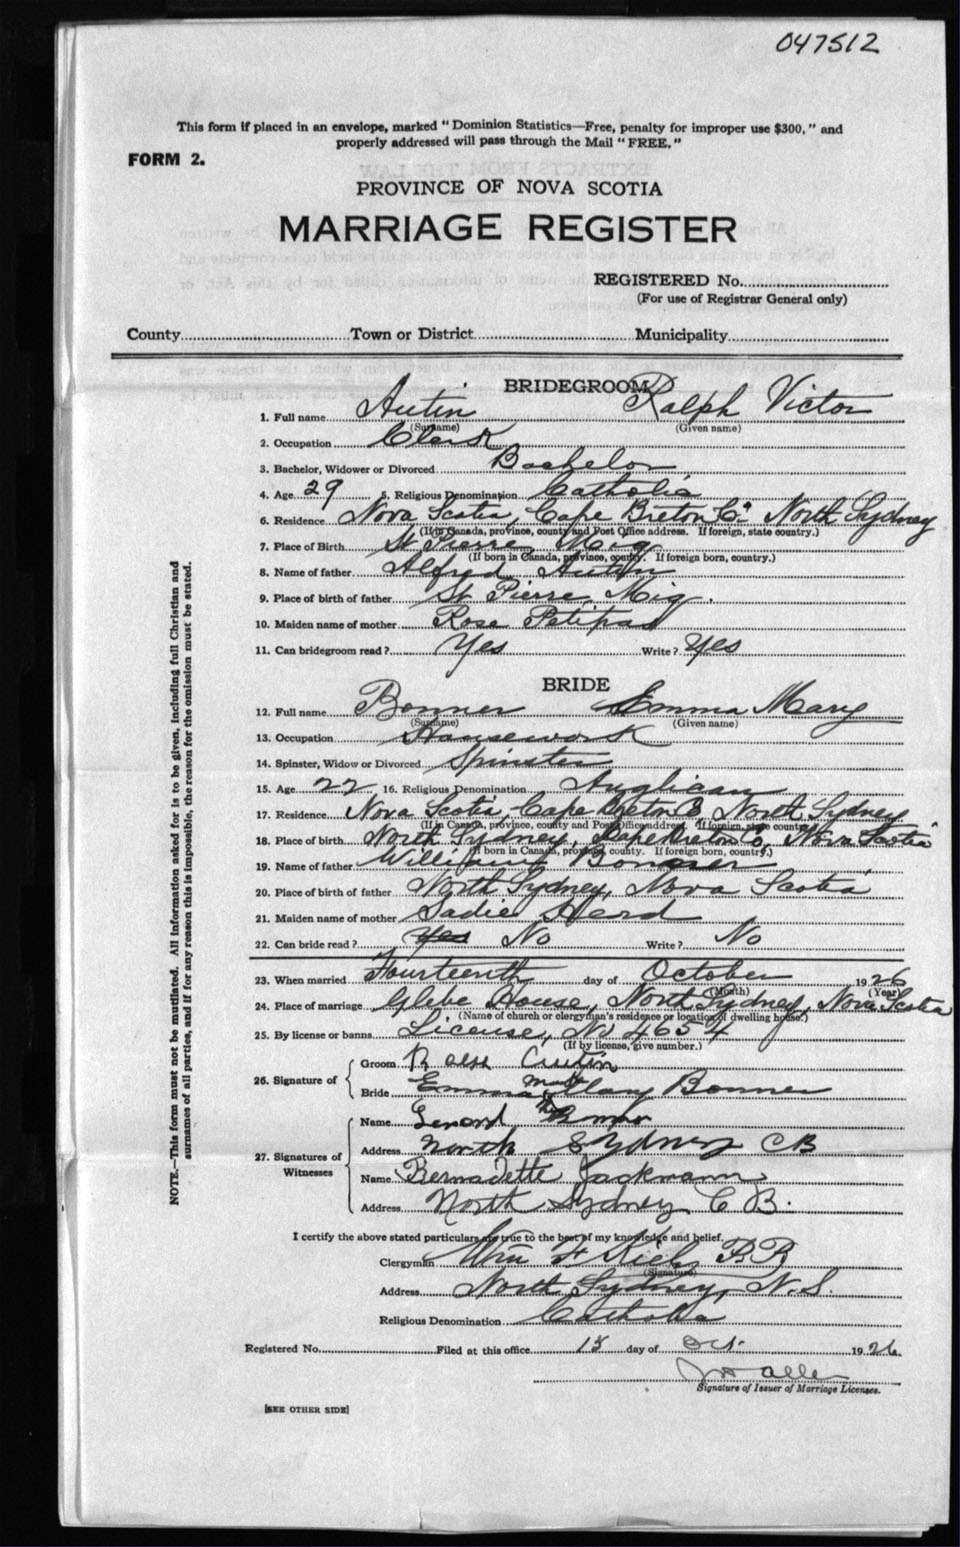 047512
This form if placed in an envelope, marked "Dominion Statistics—Free, penalty for improper use $300," and
properly addressed will pass through the Mail "FREE."
FORM 2.
PROVINCE OF NOVA SCOTIA
MARRIAGE REGISTER
REGISTERED No.
(For use of Registrar General only)
County Town or District Municipality
BRIDEGROOM
1. Full name Autin Ralph Victor
(Surname) (Given name)
2. Occupation Clerk
3. Bachelor, Widower or Divorced Bachelor
4. Age 29 5. Religious Denomination Catholic
6. Residence Nova Scotia, Cape Breton Co. North Sydney
(If in Canada, province, county and Post Office address. If foreign, state country.)
7. Place of Birth St Pierre, Miq
(If born in Canada, province, county. If foreign born, country.)
8. Name of father Alfred Autin
9. Place of birth of father St Pierre, Miq.
10. Maiden name of mother Rose Petipas
11. Can bridegroom read? Yes Write? Yes
BRIDE
12. Full name Bonner Emma Mary
(Surname) (Given name)
13. Occupation Housework
14. Spinster, Widow or Divorced Spinster
15. Age 22 16. Religious Denomination Anglican
17. Residence Nova Scotia, Cape Breton Co, North Sydney
(If in Canada, province, county and Post Office address. If foreign, state country)
18. Place of birth North Sydney, Cape Breton Co, Nova Scotia
(If born in Canada, province, county. If foreign born, country.)
19. Name of father William Bonner
20. Place of birth of father North Sydney, Nova Scotia
21. Maiden name of mother Sadie Herd
22. Can bride read? Yes No Write? No
23. When married Fourteenth day of October 1926
(Month) (Year)
24. Place of marriage Glebe House, North Sydney, Nova Scotia
(Name of church or clergyman's residence or location of dwelling house.)
25. By license or banns License, No 4654
(If by license, give number.)
26. Signature of
Groom Ralph Autin
Bride Emma Mary Bonner
27. Signatures of Witnesses
Name
Address North Sydney CB
Name Bernadette Jackman
Address North Sydney C B.
I certify the above stated particulars are true to the best of my knowledge and belief.
Clergyman Wm F P.P.
(Signature)
Address North Sydney, N.S.
Religious Denomination Catholic
Registered No. Filed at this office 15 day of Oct. 1926
Allen
Signature of Issuer of Marriage Licenses.
[SEE OTHER SIDE]
NOTE.—This form must not be mutilated. All information asked for is to be given, including full Christian and
surnames of all parties, and if for any reason this is impossible, the reason for the omission must be stated.